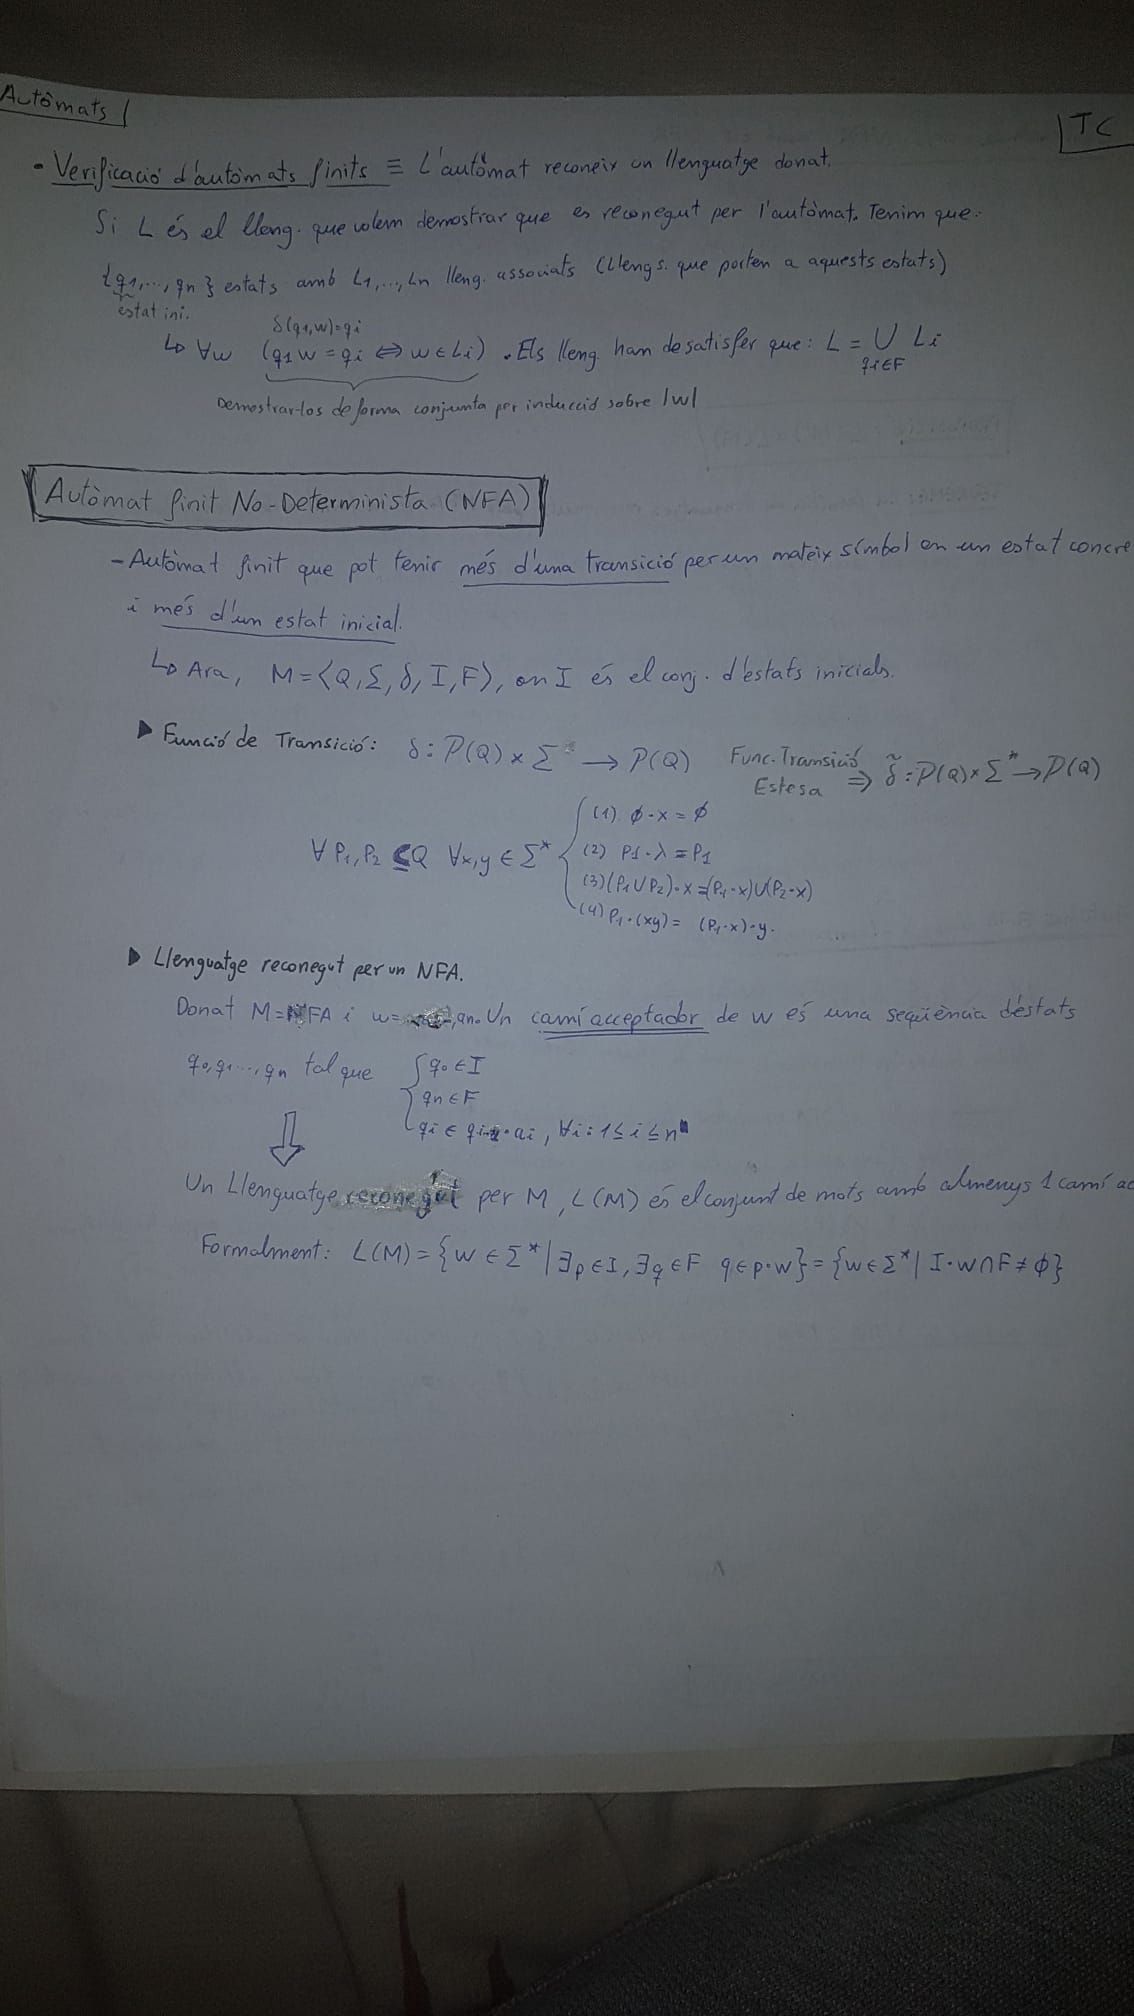 Autòmats
TC
• Verificació d'autòmats finits ≡ L'autòmat reconeix un llenguatge donat.
Si L és el lleng. que volem demostrar que es reconegut per l'autòmat. Tenim que:
{q1,..., qn} estats amb L1,...,Ln lleng. associats (Llengs. que porten a aquests estats)
estat ini.
δ(q1,w)=qi
↳ ∀w (q1w = qi ⇔ w ∈ Li). Els lleng. han de satisfer que: L = ∪ Li
qi∈F
Demostrar-los de forma conjunta per inducció sobre |w|
Autòmat finit No-Determinista (NFA)
- Autòmat finit que pot tenir més d'una transició per un mateix símbol en un estat concre
i més d'un estat inicial.
↳ Ara, M=⟨Q,Σ,δ,I,F⟩, on I és el conj. d'estats inicials.
▶ Funció de Transició: δ: P(Q) × Σ → P(Q) Func. Transició
Estesa ⇒ δ̃: P(Q) × Σ* → P(Q)
(1) ∅·x = ∅
∀ P1, P2 ⊆ Q ∀x,y ∈ Σ* (2) P1·λ = P1
(3) (P1 ∪ P2)·x = (P1·x) ∪ (P2·x)
(4) P1·(xy) = (P1·x)·y.
▶ Llenguatge reconegut per un NFA.
Donat M=NFA i w= an. Un camí acceptador de w és una seqüència d'estats
q0,q1...,qn tal que q0 ∈ I
qn ∈ F
qi ∈ qi-1·ai, ∀i: 1≤i≤n
Un Llenguatge reconegut per M, L(M) és el conjunt de mots amb almenys 1 camí ac
Formalment: L(M) = {w ∈ Σ* | ∃p∈I, ∃q∈F q∈p·w} = {w∈Σ* | I·w∩F ≠ ∅}